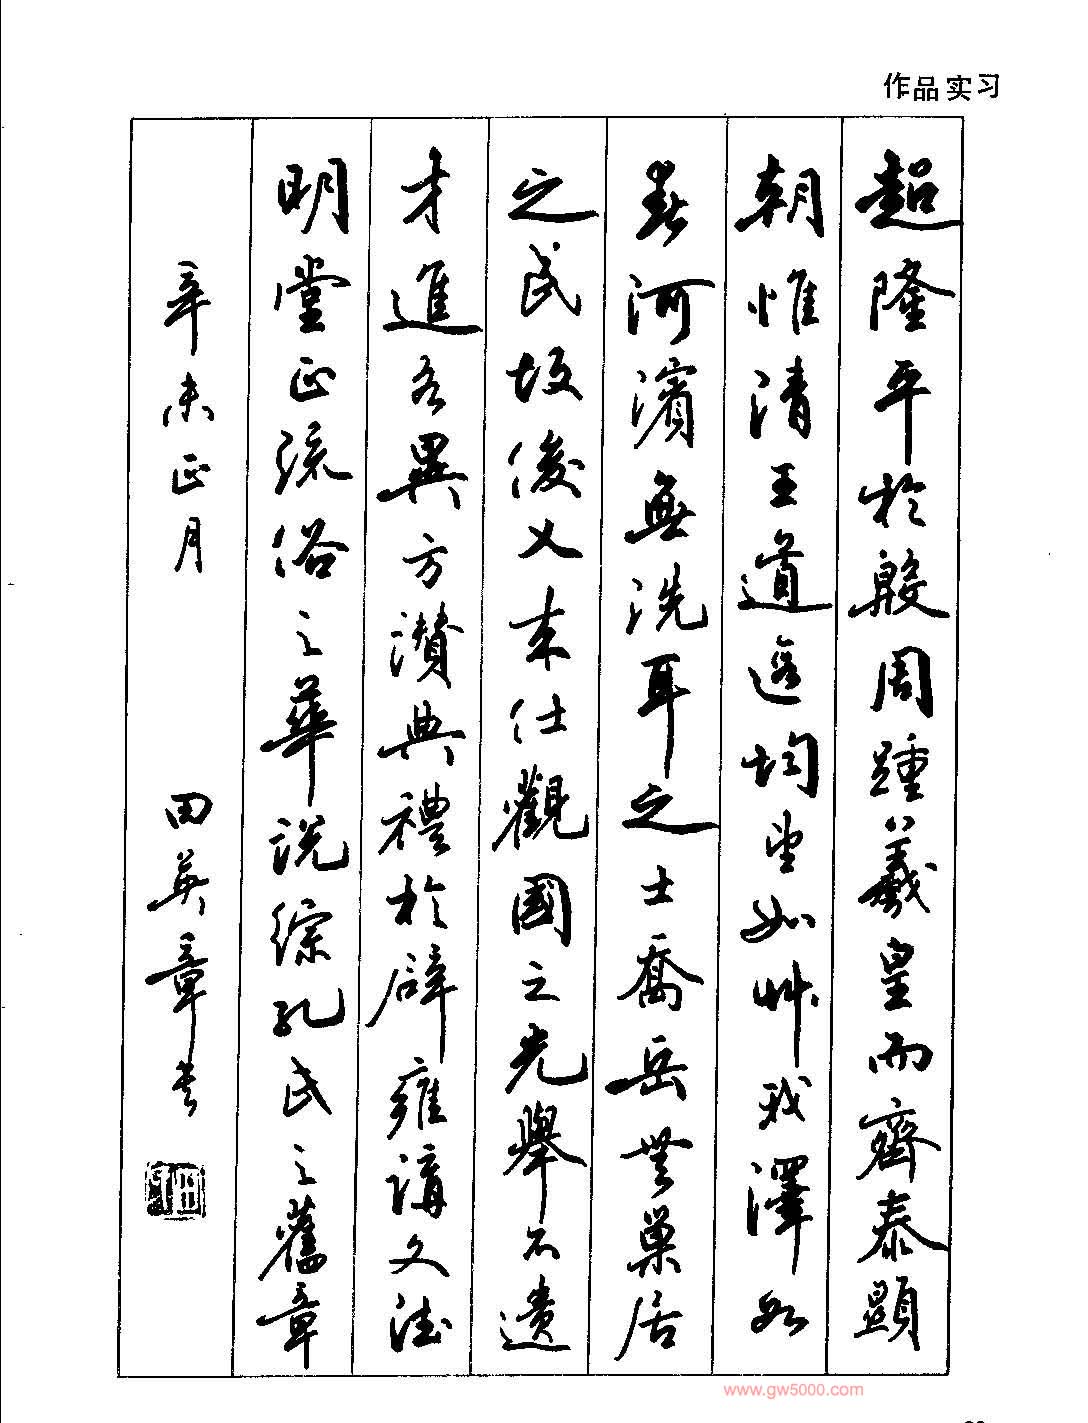 作品实习
超隆平於殷周踵羲皇而齊泰顯
朝惟清王道遐均望如艸我澤如
春河濱無洗耳之士喬岳無巢居
之民故俊乂来仕觀國之光舉不遺
才進各異方讚典禮於辟雍講文德
明堂正流俗之華説綜孔氏之舊章
辛未正月 田英章书
www.gw5000.com